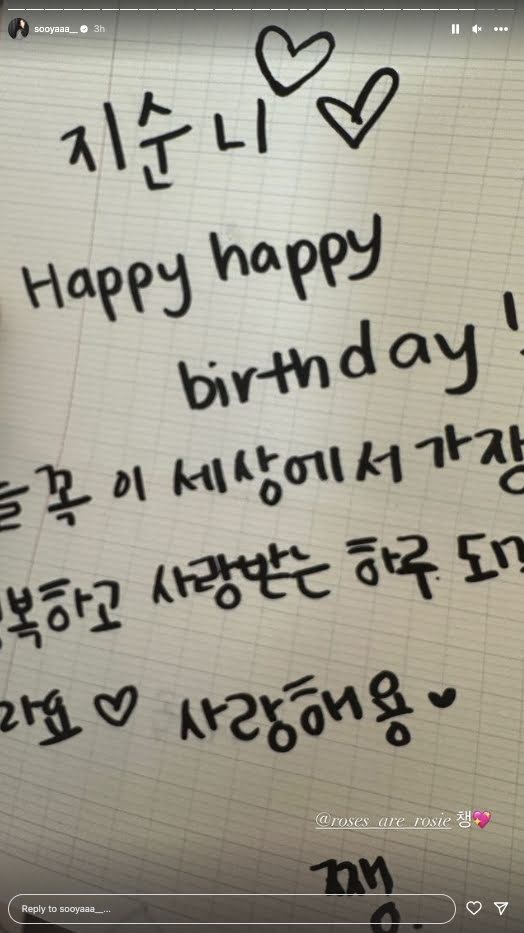 sooyaaa__ 3h
지순니 ♡♡
Happy happy
birthday!
늘 꼭 이 세상에서 가장
복하고 사랑받는 하루
라요 ♡ 사랑해용 ♥
@roses_are_rosie 챙💖
쨍.
Reply to sooyaaa__...